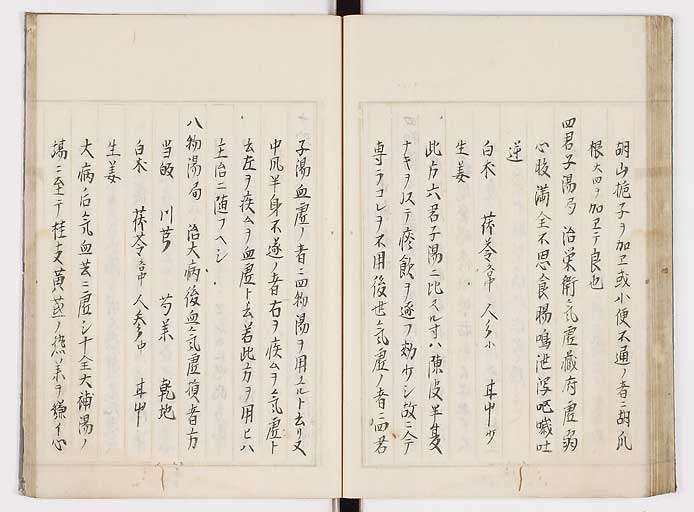 胡山梔子ヲ加ヱ或小便不通ノ者ニ胡瓜
根大四ヲ加ヱテ良也
四君子湯局 治栄衛氣虚藏府虚弱
心腹満全不思食腸鳴泄瀉嘔噦吐
逆
白朮 茯苓常 人参小 甘中少
生姜
此方六君子湯ニ比スル寸ハ陳皮半夏
ナキヲ以テ痰飲ヲ逐フ効少シ故ニ今
専ラコレヲ不用後世氣虚ノ者ニ四君
子湯血虚ノ者ニ四物湯ヲ用ユルト云リ又
中風半身不遂ノ者右ヲ疾ムヲ氣虚ト
云左ヲ疾ムヲ血虚ト云若此方ヲ用ヒハ
主治ニ随フヘシ
八物湯局 治大病後血氣虚損者方
当皈 川芎 芍薬 乾地
白朮 茯苓常 人参中 甘中
生姜
大病后氣血共ニ虚シ十全大補湯ノ
場ニ至テ桂支黄芪ノ熱薬ヲ嫌イ心